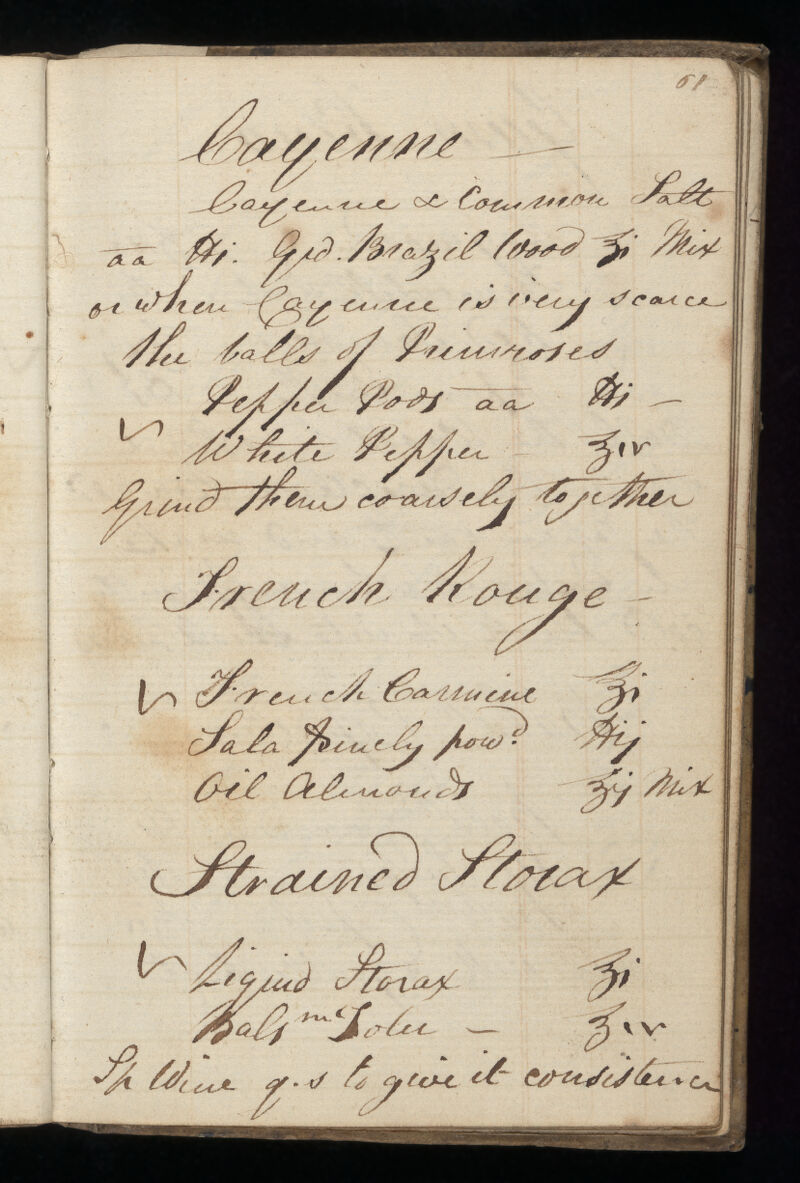 61
Cayenne —
Cayenne & Common Salt
aa ℔i. Grd. Brazil Wood ℥i Mix
or when Cayenne is very scarce
the balls of Primroses
Pepper Pods aa ℔i —
White Pepper - ℥iv
Grind them coarsely together
French Rouge -
French Carmine ℥i
Sala finely powd
℔ij
Oil Almonds ℥ij Mix
Strained Storax
Liquid Storax ℥i
Balsm Tolu — ℥iv
Sp Wine q.s to give it consistence